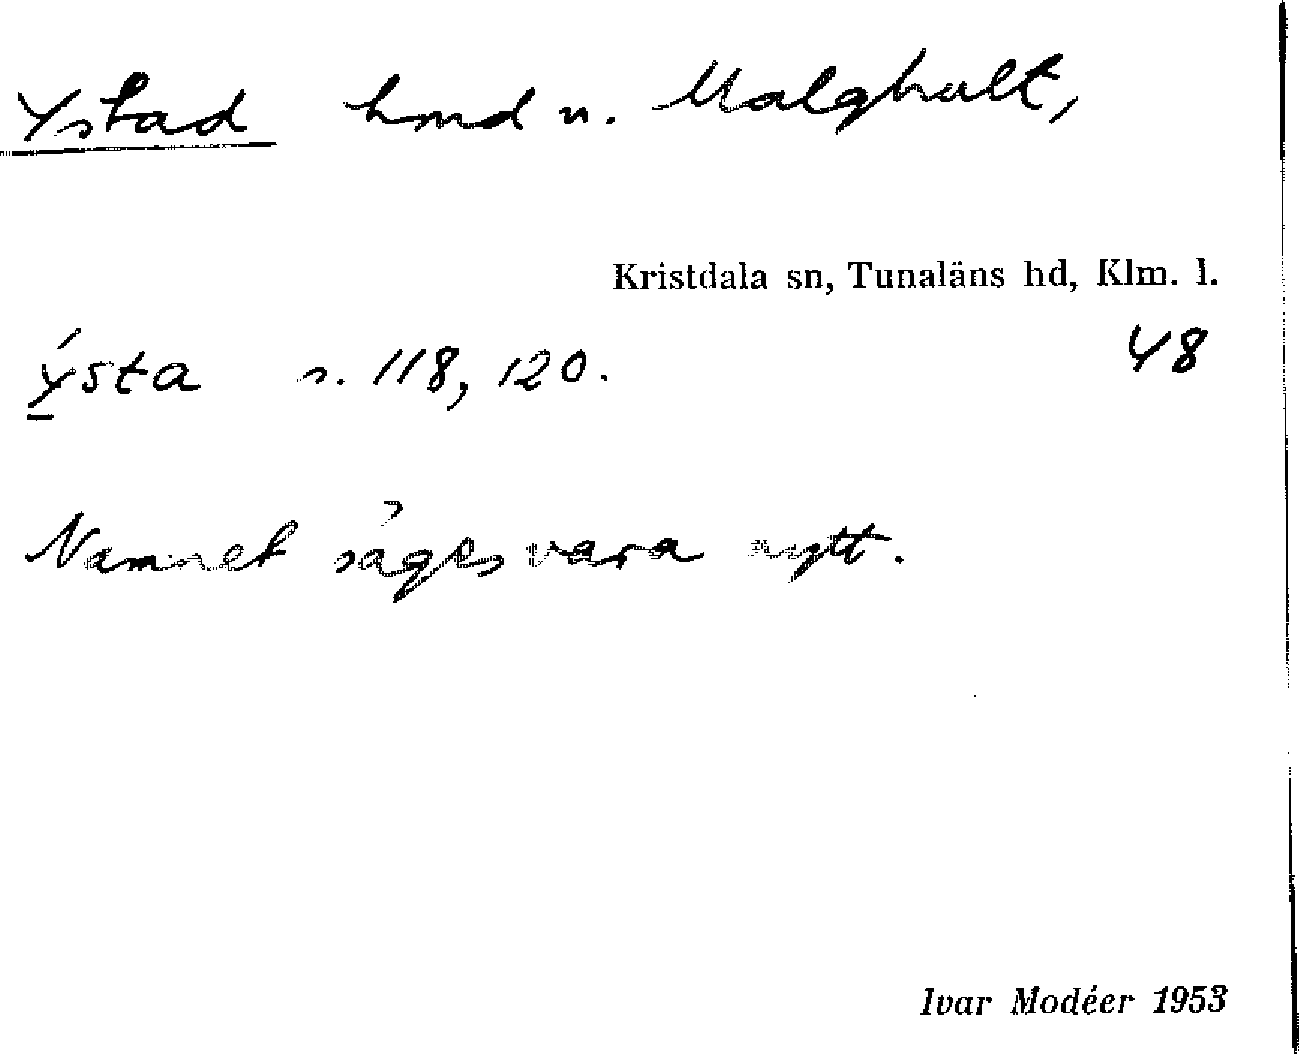 Ystad hmd u. Malghult,
Kristdala sn, Tunaläns hd, Klm. l.
ýsta s. 118, 120. 48
Namnet säges vara nytt.
Ivar Modéer 1953